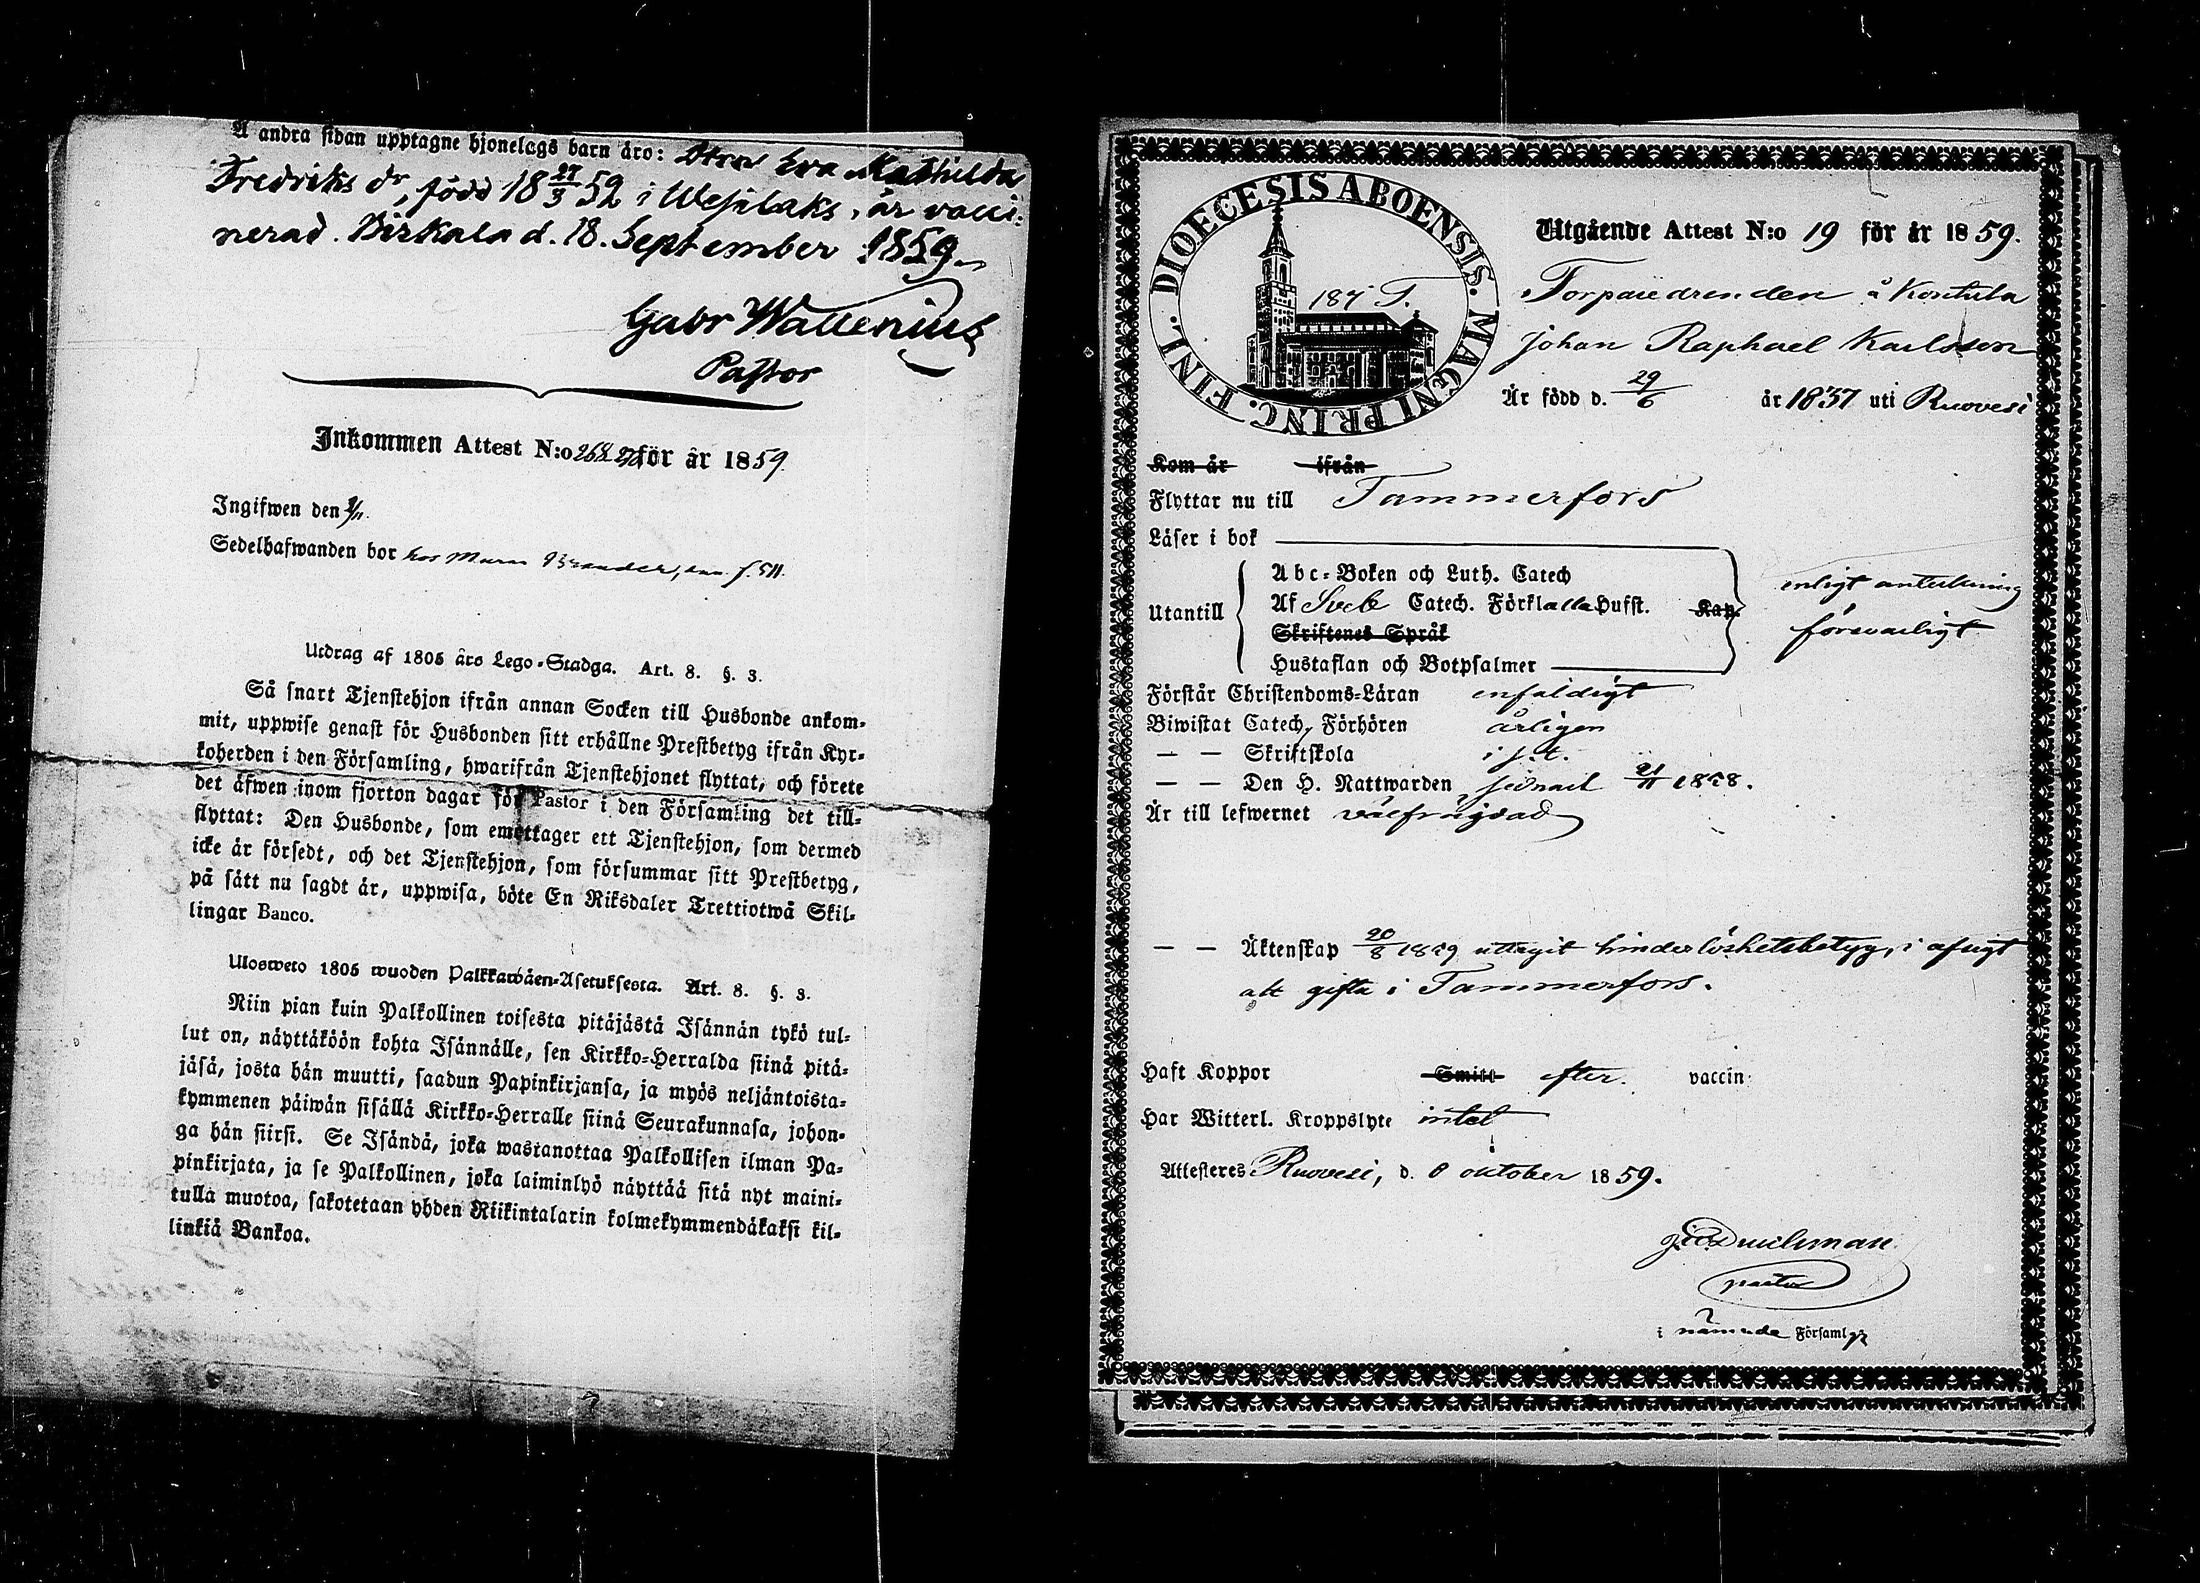 Å andra sidan upptagne hjonelags barn äro: Dtrn Eva Mathilda
Fredriks dr, född 18 27/3 52 i Wesilaks, är vacci-
nerad. Birkala d. 18. September 1859.
Gabr Wallenius
Pastor
Inkommen Attest N:o 268. för år 1859.
Ingifwen den
Sedelhafwanden bor hos Murm Brander,
Utdrag af 1805 års Lego-Stadga. Art. 8. §. 3.
Så snart Tjenstehjon ifrån annan Socken till Husbonde ankom-
mit, uppwise genast för Husbonden sitt erhållne Prestbetyg ifrån Kyr-
koherden i den Församling, hwarifrån Tjenstehjonet flyttat, och förete
det äfwen inom fjorton dagar för Pastor i den Församling det till-
flyttat: Den Husbonde, som emottager ett Tjenstehjon, som dermed
icke är försedt, och det Tjenstehjon, som försummar sitt Prestbetyg,
på sätt nu sagdt är, uppwisa, böte En Riksdaler Trettiotwå Skil-
lingar Banco.
Ulosweto 1805 wuoden Palkkawäen-Asetuksesta. Art. 8. §. 3.
Niin pian kuin Palkollinen toisesta pitäjästä Isännän tykö tul-
lut on, näyttäköön kohta Isännälle, sen Kirkko-Herralda siinä pitä-
jäsä, josta hän muutti, saadun Papinkirjansa, ja myös neljäntoista-
kymmenen päiwän sisällä Kirkko-Herralle siinä Seurakunnasa, johon-
ga hän siirsi. Se Isändä, joka wastanottaa Palkollisen ilman Pa-
pinkirjata, ja se Palkollinen, joka laiminlyö näyttää sitä nyt maini-
tulla muotoa, sakotetaan yhden Riikintalarin kolmekymmendäkaksi kil-
linkiä Bankoa.
DIOECESIS ABOENSIS. MAGNI PRINC. FINL.
Utgående Attest N:o 19 för år 1859.
Torparedrenden å Kontula
Johan Raphael Karlsson
Är född d. 29/6 år 1837 uti Ruovesi
Kom år ifrån
Flyttar nu till Tammerfors
Läser i bok
Utantill
Abc-Boken och Luth. Catech
Af Sveb Catech. Förkl alla Hufst. Kap.
Skriftenes Språk
Hustaflan och Botpsalmer
enligt anteckning
försvarligt
Förstår Christendoms-Läran enfaldigt
Biwistat Catech. Förhören årligen
— — Skriftskola i s. t.
— — Den H. Nattwarden sednast 21/11 1858.
Är till lefwernet välfrägdad
— — Äktenskap 20/8 1859 uttagit hinderlöshetsbetyg, i afsigt
att gifta i Tammerfors.
Haft Koppor Smitt efter. vaccin:
Har Witterl. Kroppslyte intet
Attesteres Ruovesi, d. 8 oktober 1859.
pastor
i nämnde Församl